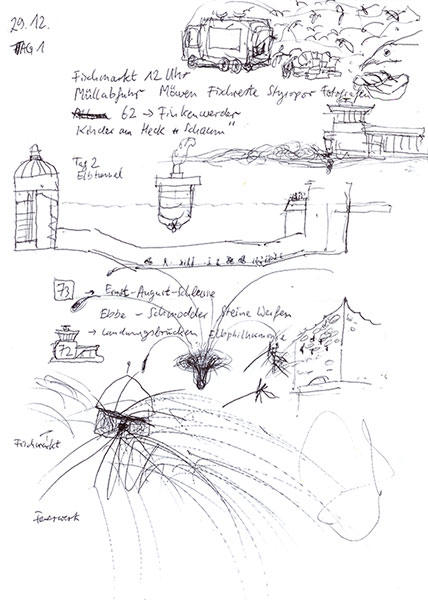 29.12.
TAG 1
Fischmarkt 12 Uhr
Müllabfuhr Möwen Fischreste Styropor Fotografen
62 → Finkenwerder
Kinder am Heck "Schaum"
Tag 2
Elbtunnel
73 → Ernst-August-Schleuse
Ebbe - Schmodder Steine Werfen
72 → Landungsbrücken Elbphilharmonie
Fischmarkt
Feuerwerk